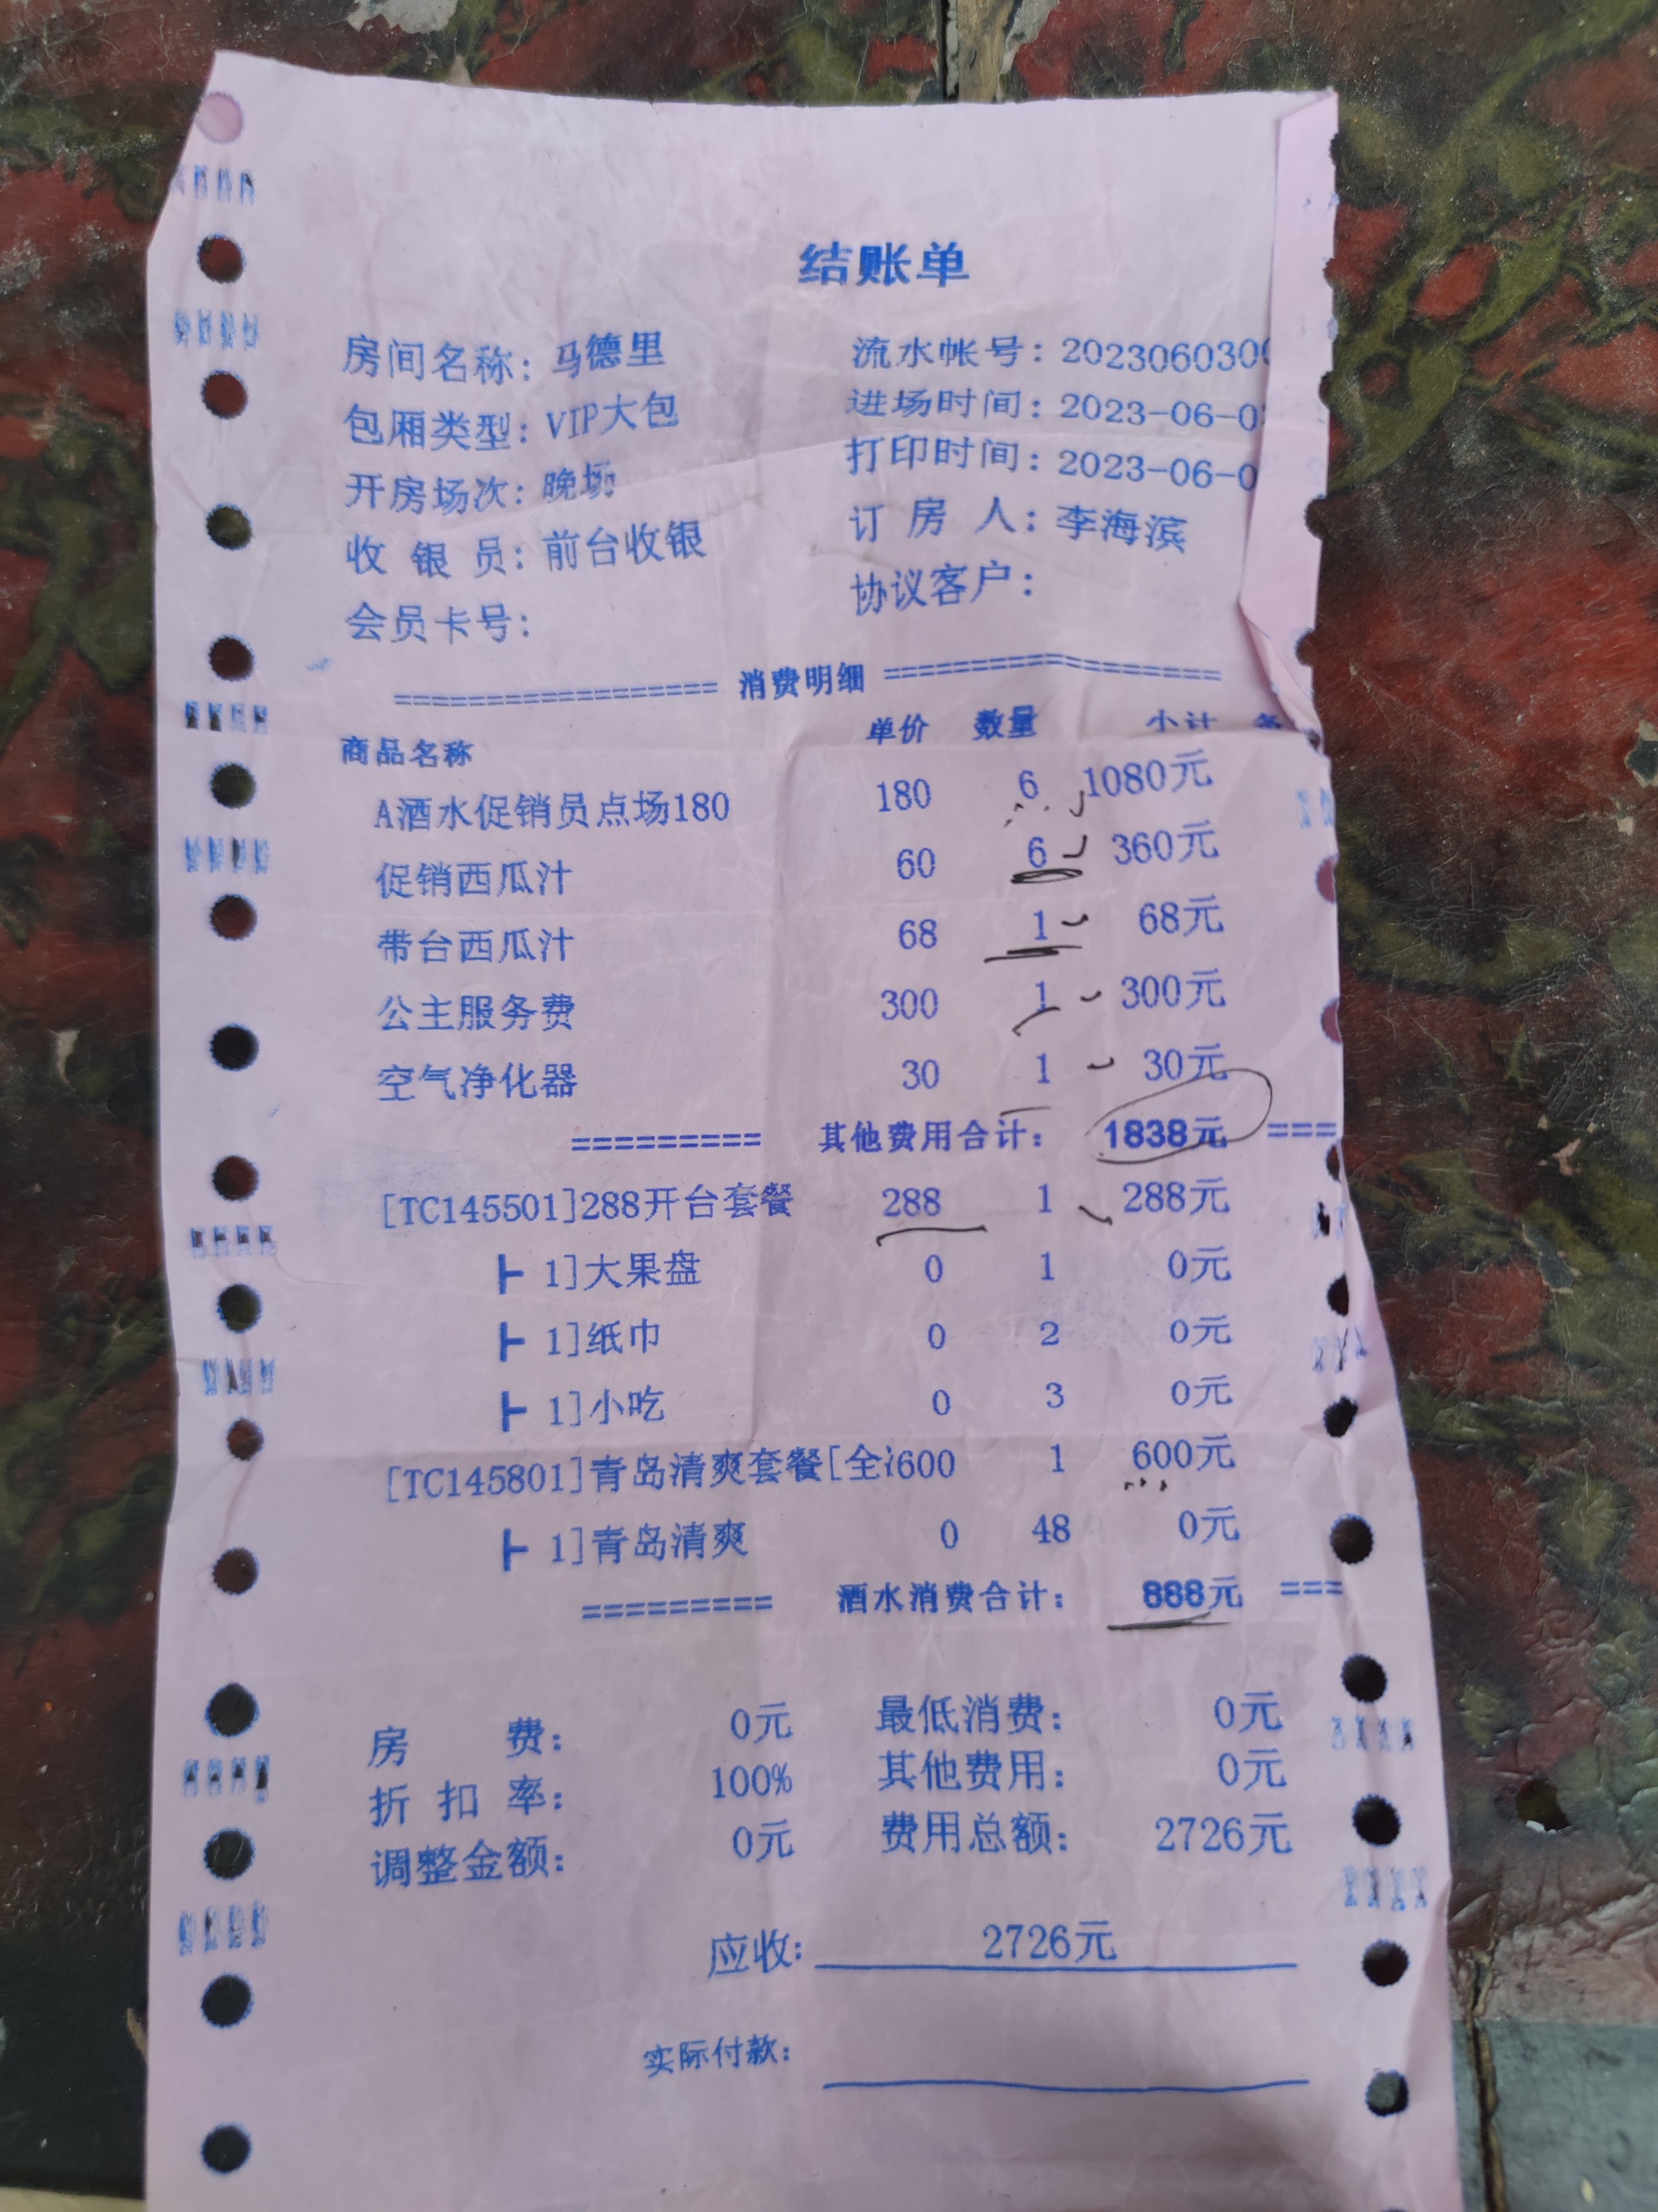 结账单
房间名称：马德里 流水帐号：202306030
包厢类型：VIP大包 进场时间：2023-06-0
开房场次：晚场 打印时间：2023-06-0
收银员：前台收银 订房人：李海滨
会员卡号： 协议客户：
================= 消费明细 =================
商品名称 单价 数量 小计
A酒水促销员点场180 180 6 1080元
促销西瓜汁 60 6 360元
带台西瓜汁 68 1 68元
公主服务费 300 1 300元
空气净化器 30 1 30元
========= 其他费用合计： 1838元 ===
[TC145501]288开台套餐 288 1 288元
┣ 1]大果盘 0 1 0元
┣ 1]纸巾 0 2 0元
┣ 1]小吃 0 3 0元
[TC145801]青岛清爽套餐[全 600 1 600元
┣ 1]青岛清爽 0 48 0元
========= 酒水消费合计： 888元 ===
房费： 0元 最低消费： 0元
折扣率： 100% 其他费用： 0元
调整金额： 0元 费用总额： 2726元
应收： 2726元
实际付款：